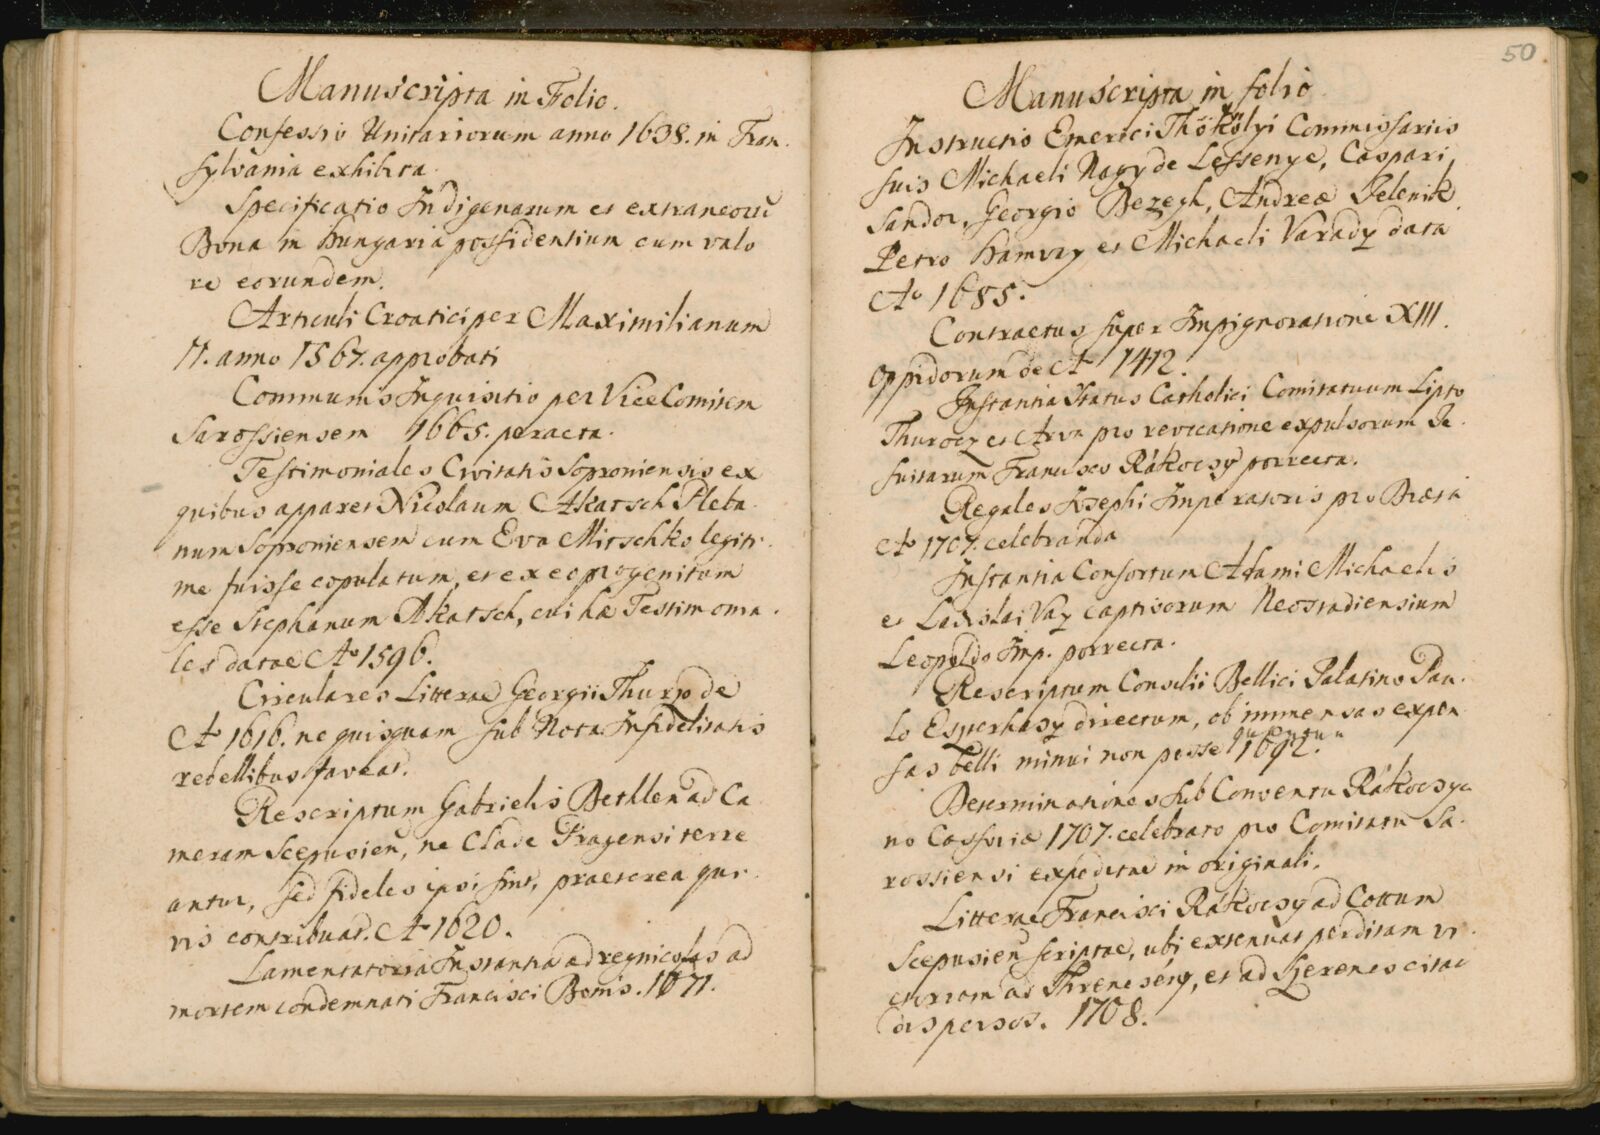 Manuscripta in Folio.
Confessio Unitariorum anno 1638. in Tran
sylvania exhibita.
Specificatio Indigenarum et extraneorū
Bona in Hungaria possidentium cum valo
re eorundem.
Articuli Croatici per Maximilianum
II. anno 1567. approbati
Communis Inquisitio per Vice Comitem
Sarossiensem 1665. peracta.
Testimoniales Civitatis Soproniensis ex
quibus apparet Nicolaum Akatsch Pleba
num Soproniensem cum Eva Mitschko legiti
me fuisse copulatum, et ex eo progenitum
esse Stephanum Akatsch, cui hae Testimonia
les datae Aō 1596.
Circulares Litterae Georgii Thurzo de
Aō 1616. ne quisquam sub Nota Infidelitatis
rebellibus faveat.
Rescriptum Gabrielis Bethlen ad Ca
meram Scepusien, ne Clade Pragensi terre
antur, sed fideles ipsi sint, praeterea qui
vis contribuat. Aō 1620.
Lamentatoria Instantia ad regnicolas ad
mortem condemnati Francisci Bonis. 1671.
50
Manuscripta in folio
Instructio Emerici Thököly Commissariis
suis Michaeli Nagy de Lessenye, Caspari
Sandor, Georgio Bezegh, Andreae Jelenik
Petro Hamvay et Michaeli Varady data
Aō 1685.
Contractus super Impignoratione XIII.
Oppidorum de Aō 1412.
Instantia Status Catholici Comitatuum Lipto
Thurocz et Arva pro revocatione expulsorum Je
suitarum Francisco Rákocsy porrecta.
Regales Josephi Imperatoris pro Diaeta
Aō 1707. celebranda
Instantia Consortum Adami Michaelis
et Ladislai Vay captivorum Neostadiensium
Leopoldo Imp. porrecta.
Rescriptum Consilii Bellici Palatino Pau
lo Eszterhasy directum, ob immensas expen
sas belli minui non posse 1692.
Determinationes sub Conventu Rákocsya
no Cassoviae 1707. celebrato pro Comitatu Sa
rossiensi expeditae in originali.
Litterae Francisci Rákocsy ad Cottum
Scepusien scriptae, ubi extenuat perditam vi
ctoriam ad Threncseny, et ad Szerencs citat
dispersos. 1708.